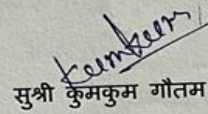 Kumkum
सुश्री कुमकुम गौतम